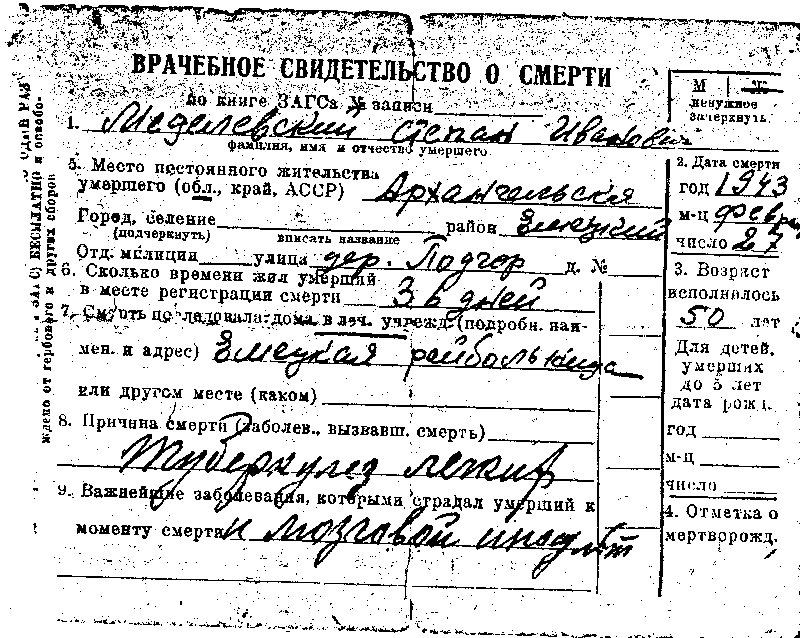 ВРАЧЕБНОЕ СВИДЕТЕЛЬСТВО О СМЕРТИ
по книге ЗАГСа № записи
1. Степан Иванович
фамилия, имя и отчество умершего
5. Место постоянного жительства
умершего (обл., край, АССР) Архангельская
Город, селение район Емецкий
(подчеркнуть) вписать название
Отд. милиции улица дер. Подгор д. №
6. Сколько времени жил умерший
в месте регистрации смерти дней
7. Смерть последовала: дома, в леч. учрежд. (подробн. наи-
мен. и адрес) Емецкая райбольница
или другом месте (каком)
8. Причина смерти (заболев., вызвавш. смерть)
Туберкулез легких
9. Важнейшие заболевания, которыми страдал умерший к
моменту смерти и мозговой инсульт
М Ж
ненужное
зачеркнуть
2. Дата смерти
год 1943
м-ц февраль
число 27
3. Возраст
исполнилось
50 лет
Для детей,
умерших
до 5 лет
дата рожд.
год
м-ц
число
4. Отметка о
мертворожд.
ЗАГС) БЕСПЛАТНО и освобо-
ждено от гербового и других сборов